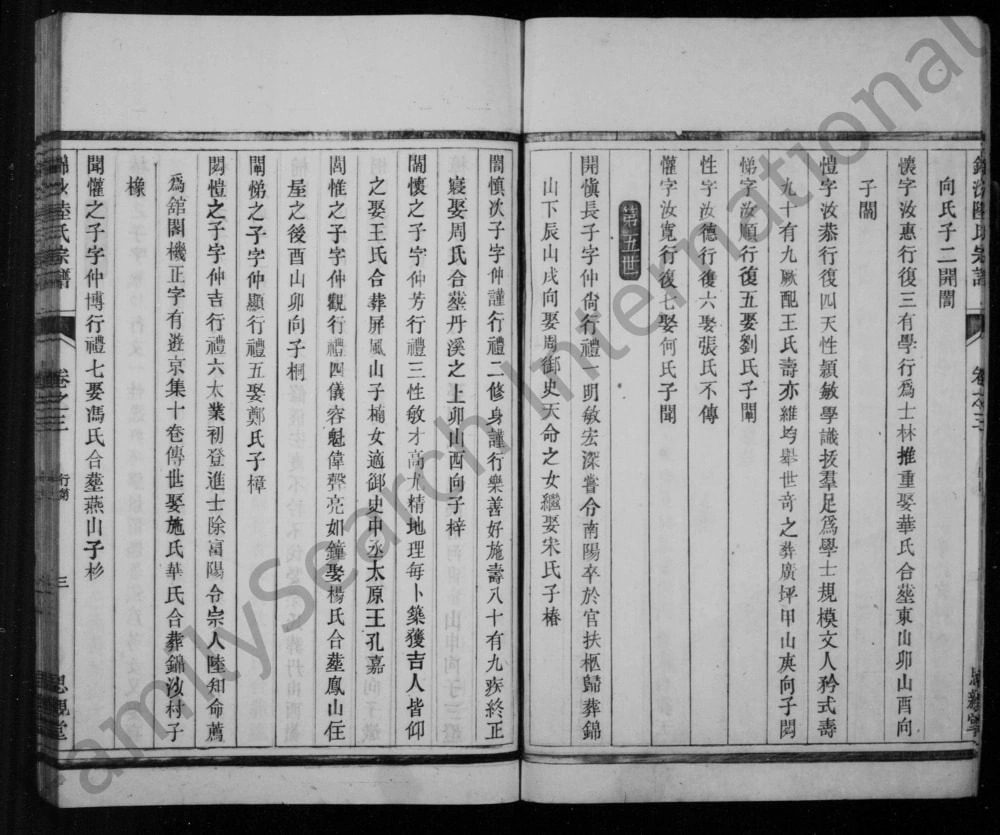 向氏子二開誾
懷字汝惠行復三有學行爲士林推重娶華氏合塟東山卯山酉向
子闗
愷字汝恭行復四天性穎敏學識拔羣足爲學士規模文人矜式壽
九十有九厥配王氏壽亦維均舉世奇之葬廣坪甲山庚向子閎
悌字汝順行復五娶劉氏子闈
性字汝德行復六娶張氏不傳
懽字汝寬行復七娶何氏子聞
第五世
開愼長子字仲尙行禮一明敏宏深嘗令南陽卒於官扶柩歸葬錦
山下辰山戌向娶周御史天命之女繼娶宋氏子椿
誾慎次子字仲謹行禮二修身謹行樂善好施壽八十有九疾終正
寢娶周氏合塟丹溪之上卯山酉向子梓
闗懷之子字仲芳行禮三性敏才高尤精地理每卜築獲吉人皆仰
之娶王氏合葬屏風山子楠女適御史中丞太原王孔嘉
閭惟之子字仲觀行禮四儀容魁偉聲亮如鐘娶楊氏合塟鳳山住
屋之後酉山卯向子桐
闈悌之子字仲顯行禮五娶鄭氏子樟
閎愷之子字仲吉行禮六太業初登進士除富陽令宗人陸知命薦
爲舘閣機正字有遊京集十卷傳世娶施氏華氏合葬錦汝村子
橡
聞懽之子字仲博行禮七娶馮氏合塟燕山子杉
陸氏宗譜
卷之三
三
思親堂
FamilySearch International